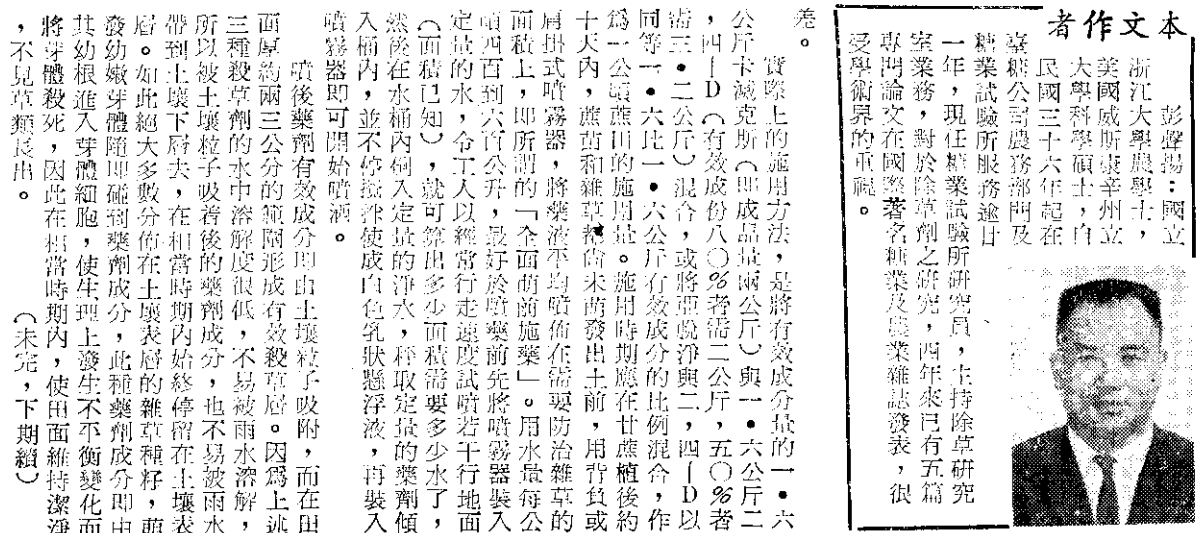 本文作者
彭聲揚:國立
浙江大學農學士,
美國威斯康辛州立
大學科學碩士,自
民國三十六年起在
臺糖公司農務部門及
糖業試驗所服務逾廿
一年,現任糖業試驗所研究員,主持除草研究
室業務,對於除草劑之研究,四年來已有五篇
專門論文在國際著名糖業及農業雜誌發表,很
受學術界的重視。
差。
實際上的施用方法,是將有效成分量的一•六
公斤卡滅克斯(即成品量兩公斤)與一•六公斤二
,四—D(有效成份八〇%者需二公斤,五〇%者
需三•二公斤)混合,或將亞脫淨與二,四—D以
同等一•六比一•六公斤有效成分的比例混合,作
爲一公頃蔗田的施用量。施用時期應在甘蔗植後約
十天內,蔗苗和雜草都尚未萌發出土前,用背負或
肩掛式噴霧器,將藥液平均噴佈在需要防治雜草的
面積上,即所謂的「全面萌前施藥」。用水量每公
噴四百到六百公升,最好於噴藥前先將噴霧器裝入
定量的水,令工人以經常行走速度試噴若干行地面
(面積已知),就可算出多少面積需要多少水了,
然後在水桶內倒入定量的淨水,秤取定量的藥劑傾
入桶內,並不停攪拌使成白色乳狀懸浮液,再裝入
噴霧器即可開始噴洒。
噴後藥劑有效成分即由土壤粒子吸附,而在田
面厚約兩三公分的範圍形成有效殺草層。因爲上述
三種殺草劑的水中溶解度很低,不易被雨水溶解,
所以被土壤粒子吸着後的藥劑成分,也不易被雨水
帶到土壤下層去,在相當時期內始終停留在土壤表
層。如此絕大多數分佈在土壤表層的雜草種籽,萌
發幼嫩芽體隨即碰到藥劑成分,此種藥劑成分即由
其幼根進入芽體細胞,使生理上發生不平衡變化而
將芽體殺死,因此在相當時期內,使田面維持潔淨
,不見草類長出。 (未完,下期續)